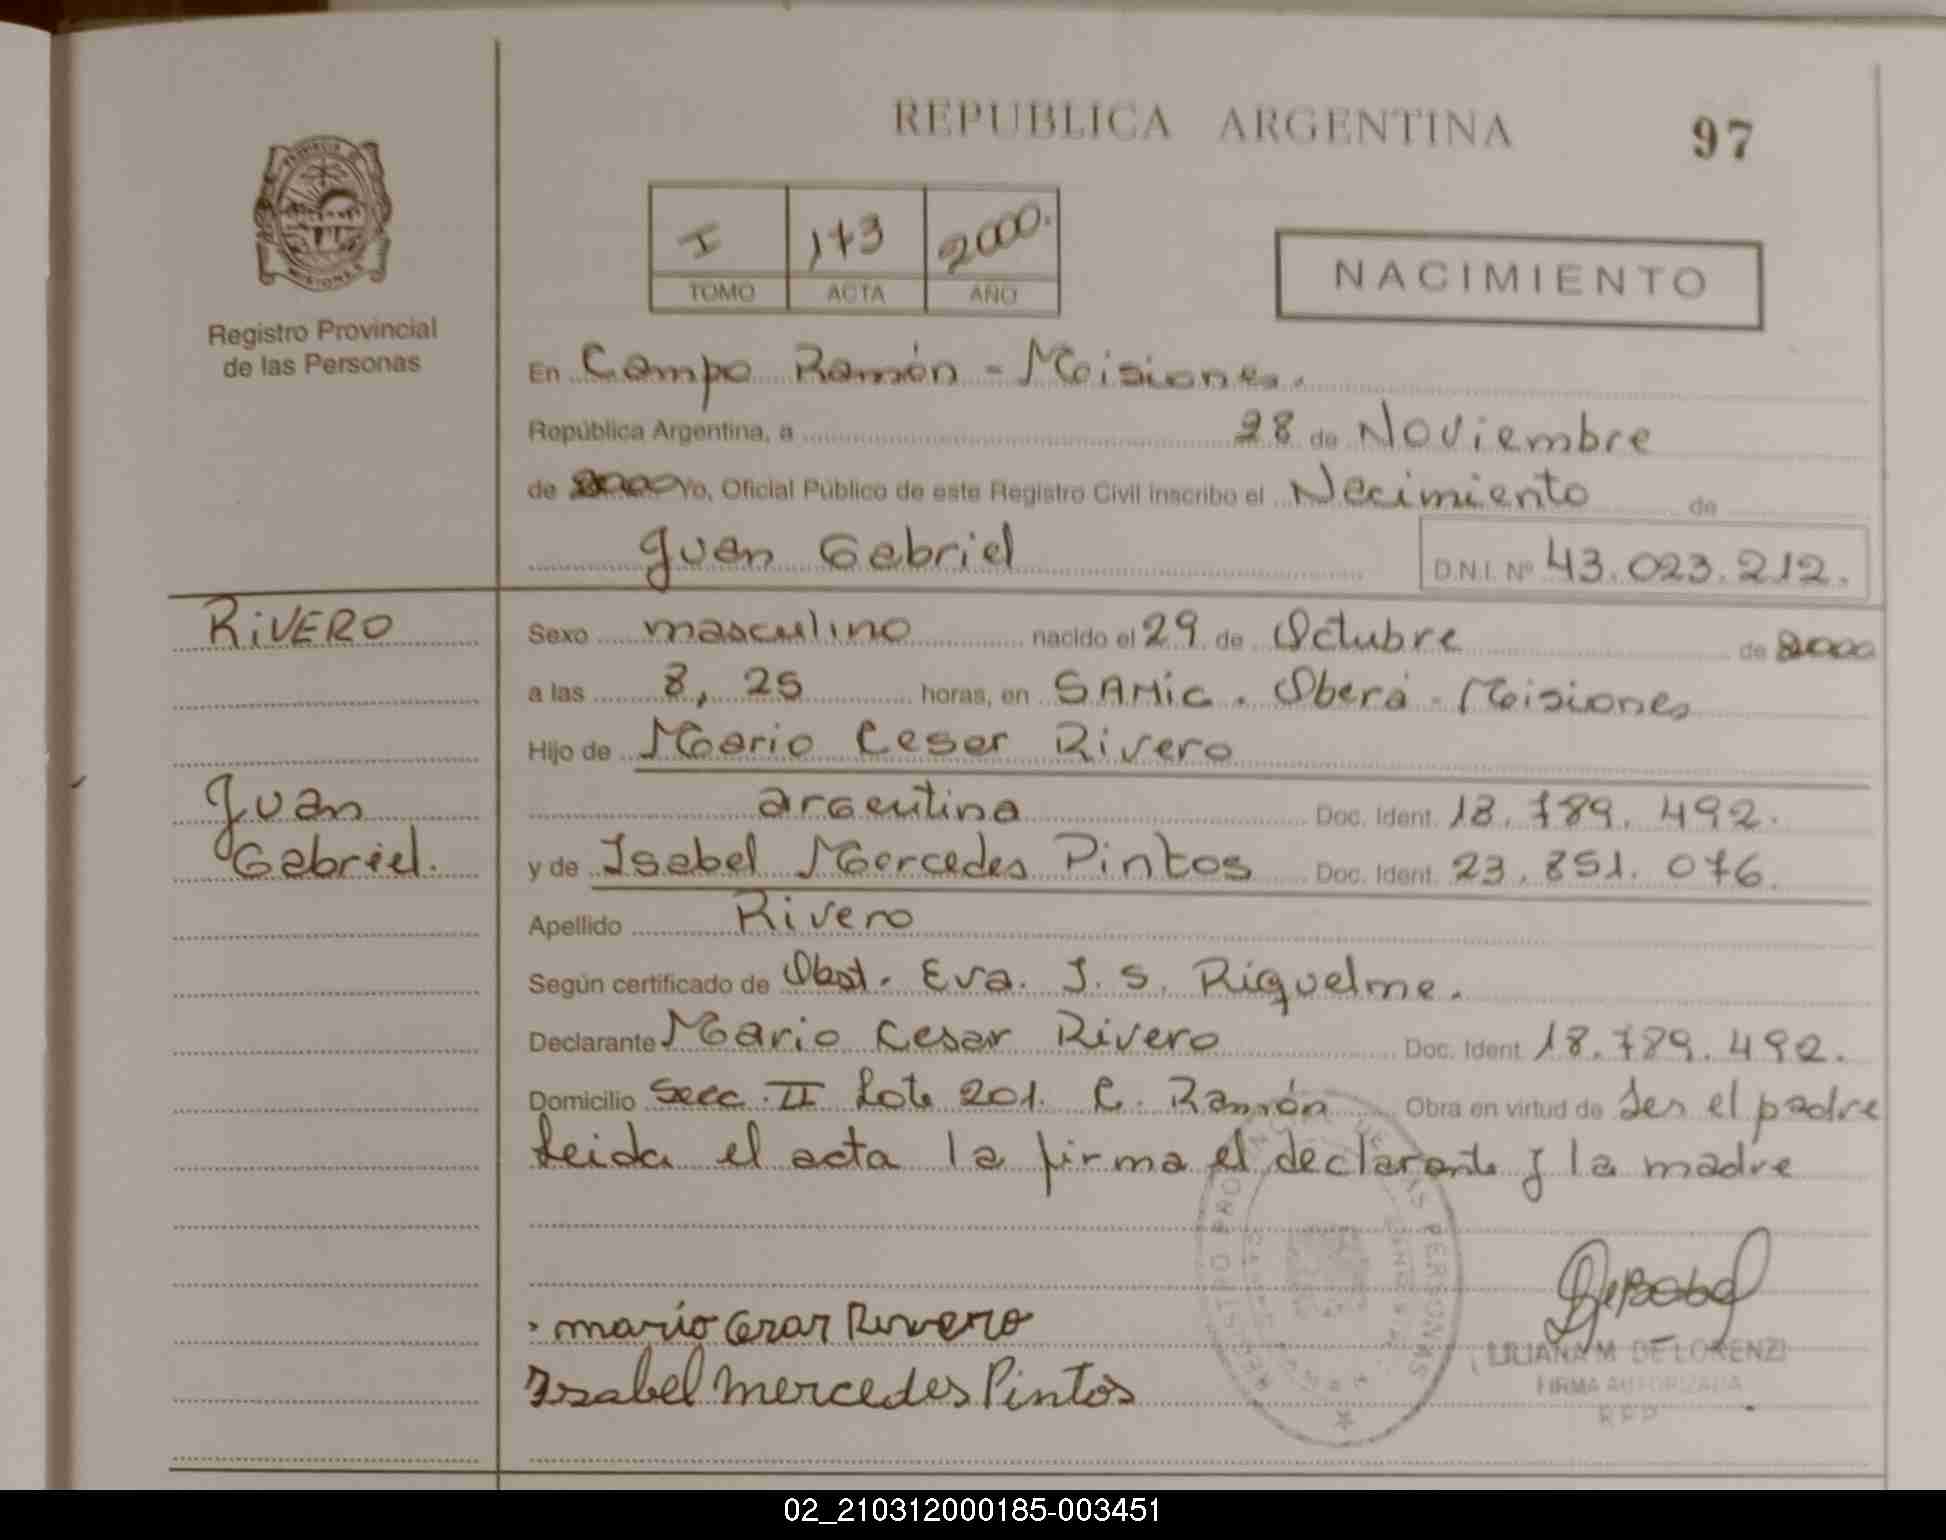 REPUBLICA ARGENTINA
97
PROVINCIA DE
MISIONES
Registro Provincial
de las Personas
I 173 2000.
TOMO ACTA AÑO
NACIMIENTO
En Campo Ramón - Misiones.
República Argentina, a 28 de Noviembre
de 2000 Yo, Oficial Público de este Registro Civil inscribo el Nacimiento de
Juan Gabriel D.N.I. Nº 43.023.212.
RiVERO
Juan
Gabriel.
Sexo masculino nacido el 29 de Octubre de 2000
a las 8, 25 horas, en SAMic. Oberá - Misiones
Hijo de Mario Cesar Rivero
argentina Doc. Ident. 18.789.492.
y de Isabel Mercedes Pintos Doc. Ident. 23.851.076.
Apellido Rivero
Según certificado de Obst. Eva. J. S. Riquelme.
Declarante Mario Cesar Rivero Doc. Ident. 18.789.492.
Domicilio Secc. II Lote 201. C. Ramón Obra en virtud de Ser el padre
Leida el acta la firma el declarante y la madre
REGISTRO PROVINCIAL DE LAS PERSONAS
mario Cesar Rivero
Isabel Mercedes Pintos
LILIANA M. DE LORENZI
FIRMA AUTORIZADA
R.P.P.
02_210312000185-003451